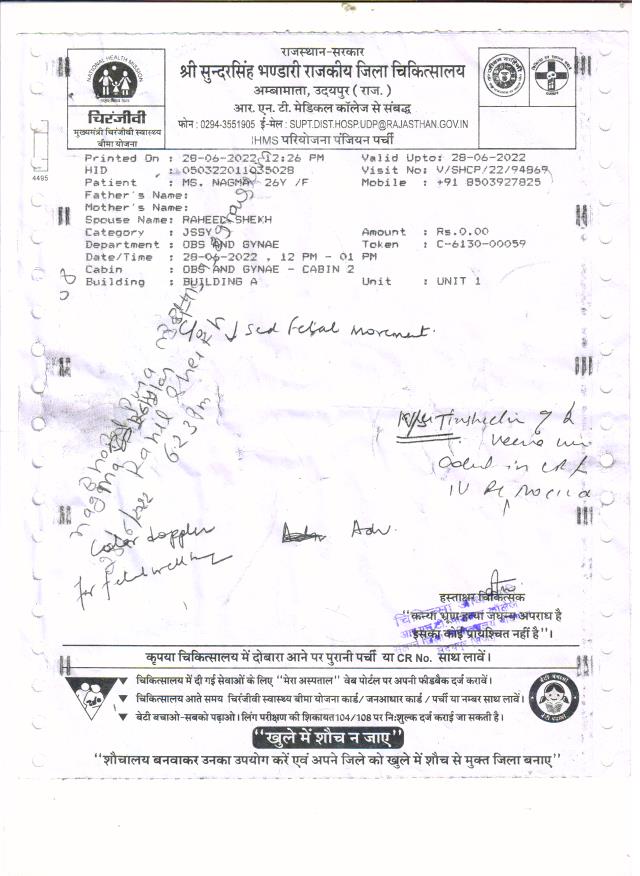 राजस्थान-सरकार
श्री सुन्दरसिंह भण्डारी राजकीय जिला चिकित्सालय
अम्बामाता, उदयपुर ( राज. )
आर. एन. टी. मेडिकल कॉलेज से संबद्ध
फोन : 0294-3551905 ई-मेल : SUPT.DIST.HOSP.UDP@RAJASTHAN.GOV.IN
IHMS परियोजना पंजियन पर्ची
NATIONAL HEALTH MISSION
चिरंजीवी
मुख्यमंत्री चिरंजीवी स्वास्थ्य
बीमा योजना
4495
Printed On : 28-06-2022 12:26 PM Valid Upto: 28-06-2022
HID : 050322011035028 Visit No: V/SHCP/22/94869
Patient : MS. NAGMA 26Y /F Mobile : +91 8503927825
Father's Name:
Mother's Name:
Spouse Name: RAHEED SHEKH
Category : JSSY Amount : Rs.0.00
Department : OBS AND GYNAE Token : C-6130-00059
Date/Time : 28-06-2022 , 12 PM - 01 PM
Cabin : OBS AND GYNAE - CABIN 2
Building : BUILDING A Unit : UNIT 1
C/o ↓sed Fetal movement.
Nagma
Rahil Sheikh
6:23 Pm
Color doppler
for fetal well
Adv.
हस्ताक्षर चिकित्सक
"कन्या भ्रूण हत्या जघन्य अपराध है
इसका कोई प्रायश्चित नहीं है"।
कृपया चिकित्सालय में दोबारा आने पर पुरानी पर्ची या CR No. साथ लावें।
चिकित्सालय में दी गई सेवाओं के लिए "मेरा अस्पताल" वेब पोर्टल पर अपनी फीडबैक दर्ज करावें।
चिकित्सालय आते समय चिरंजीवी स्वास्थ्य बीमा योजना कार्ड/ जनआधार कार्ड / पर्ची या नम्बर साथ लावें।
बेटी बचाओ-सबको पढ़ाओ। लिंग परीक्षण की शिकायत 104/108 पर नि:शुल्क दर्ज कराई जा सकती है।
"खुले में शौच न जाए"
"शौचालय बनवाकर उनका उपयोग करें एवं अपने जिले को खुले में शौच से मुक्त जिला बनाए"